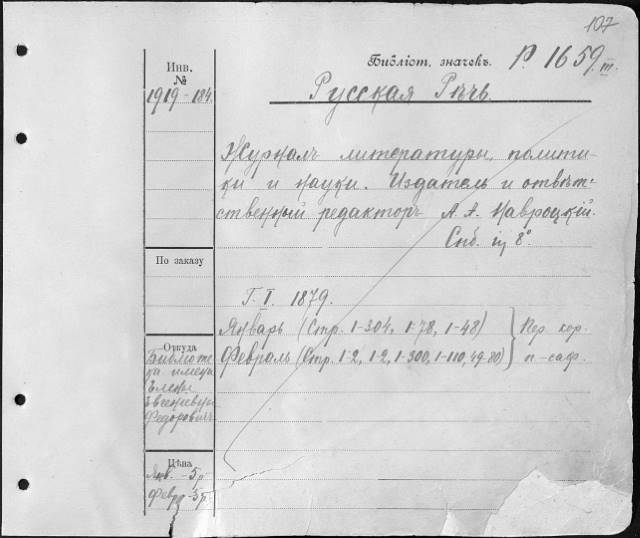 107
Библіот. значекъ. Р. 1659. III.
Инв.
№
1919-184.
Русская Рѣчь.
Журналъ литературы, полити-
ки и науки. Издатель и отвѣт-
ственный редакторъ А. А. Навроцкій.
Спб. in 8°.
По заказу
Г. I. 1879.
Январь (Стр. 1-304, 1-78, 1-48) } Пер. кор.
Февраль (Стр. 1-2, 1-2, 1-300, 1-110, 49-80) п-саф.
Откуда
Библіоте-
ка имени
Елены
Евгеніевны
Федоровичъ
Цѣна
Янв. - 5 р
Февр - 5 р.